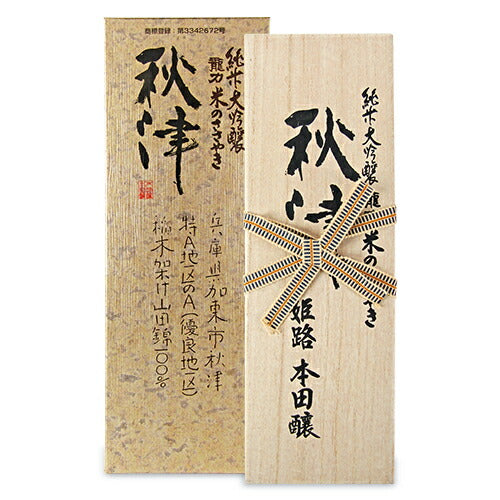 商標登録:第3342672号
純米大吟醸
龍力 米のささやき
秋津
兵庫県加東市秋津
特A地区のA(優良地区)
稲木架け山田錦一〇〇%
純米大吟醸 龍 米の き
秋津
姫路 本田醸